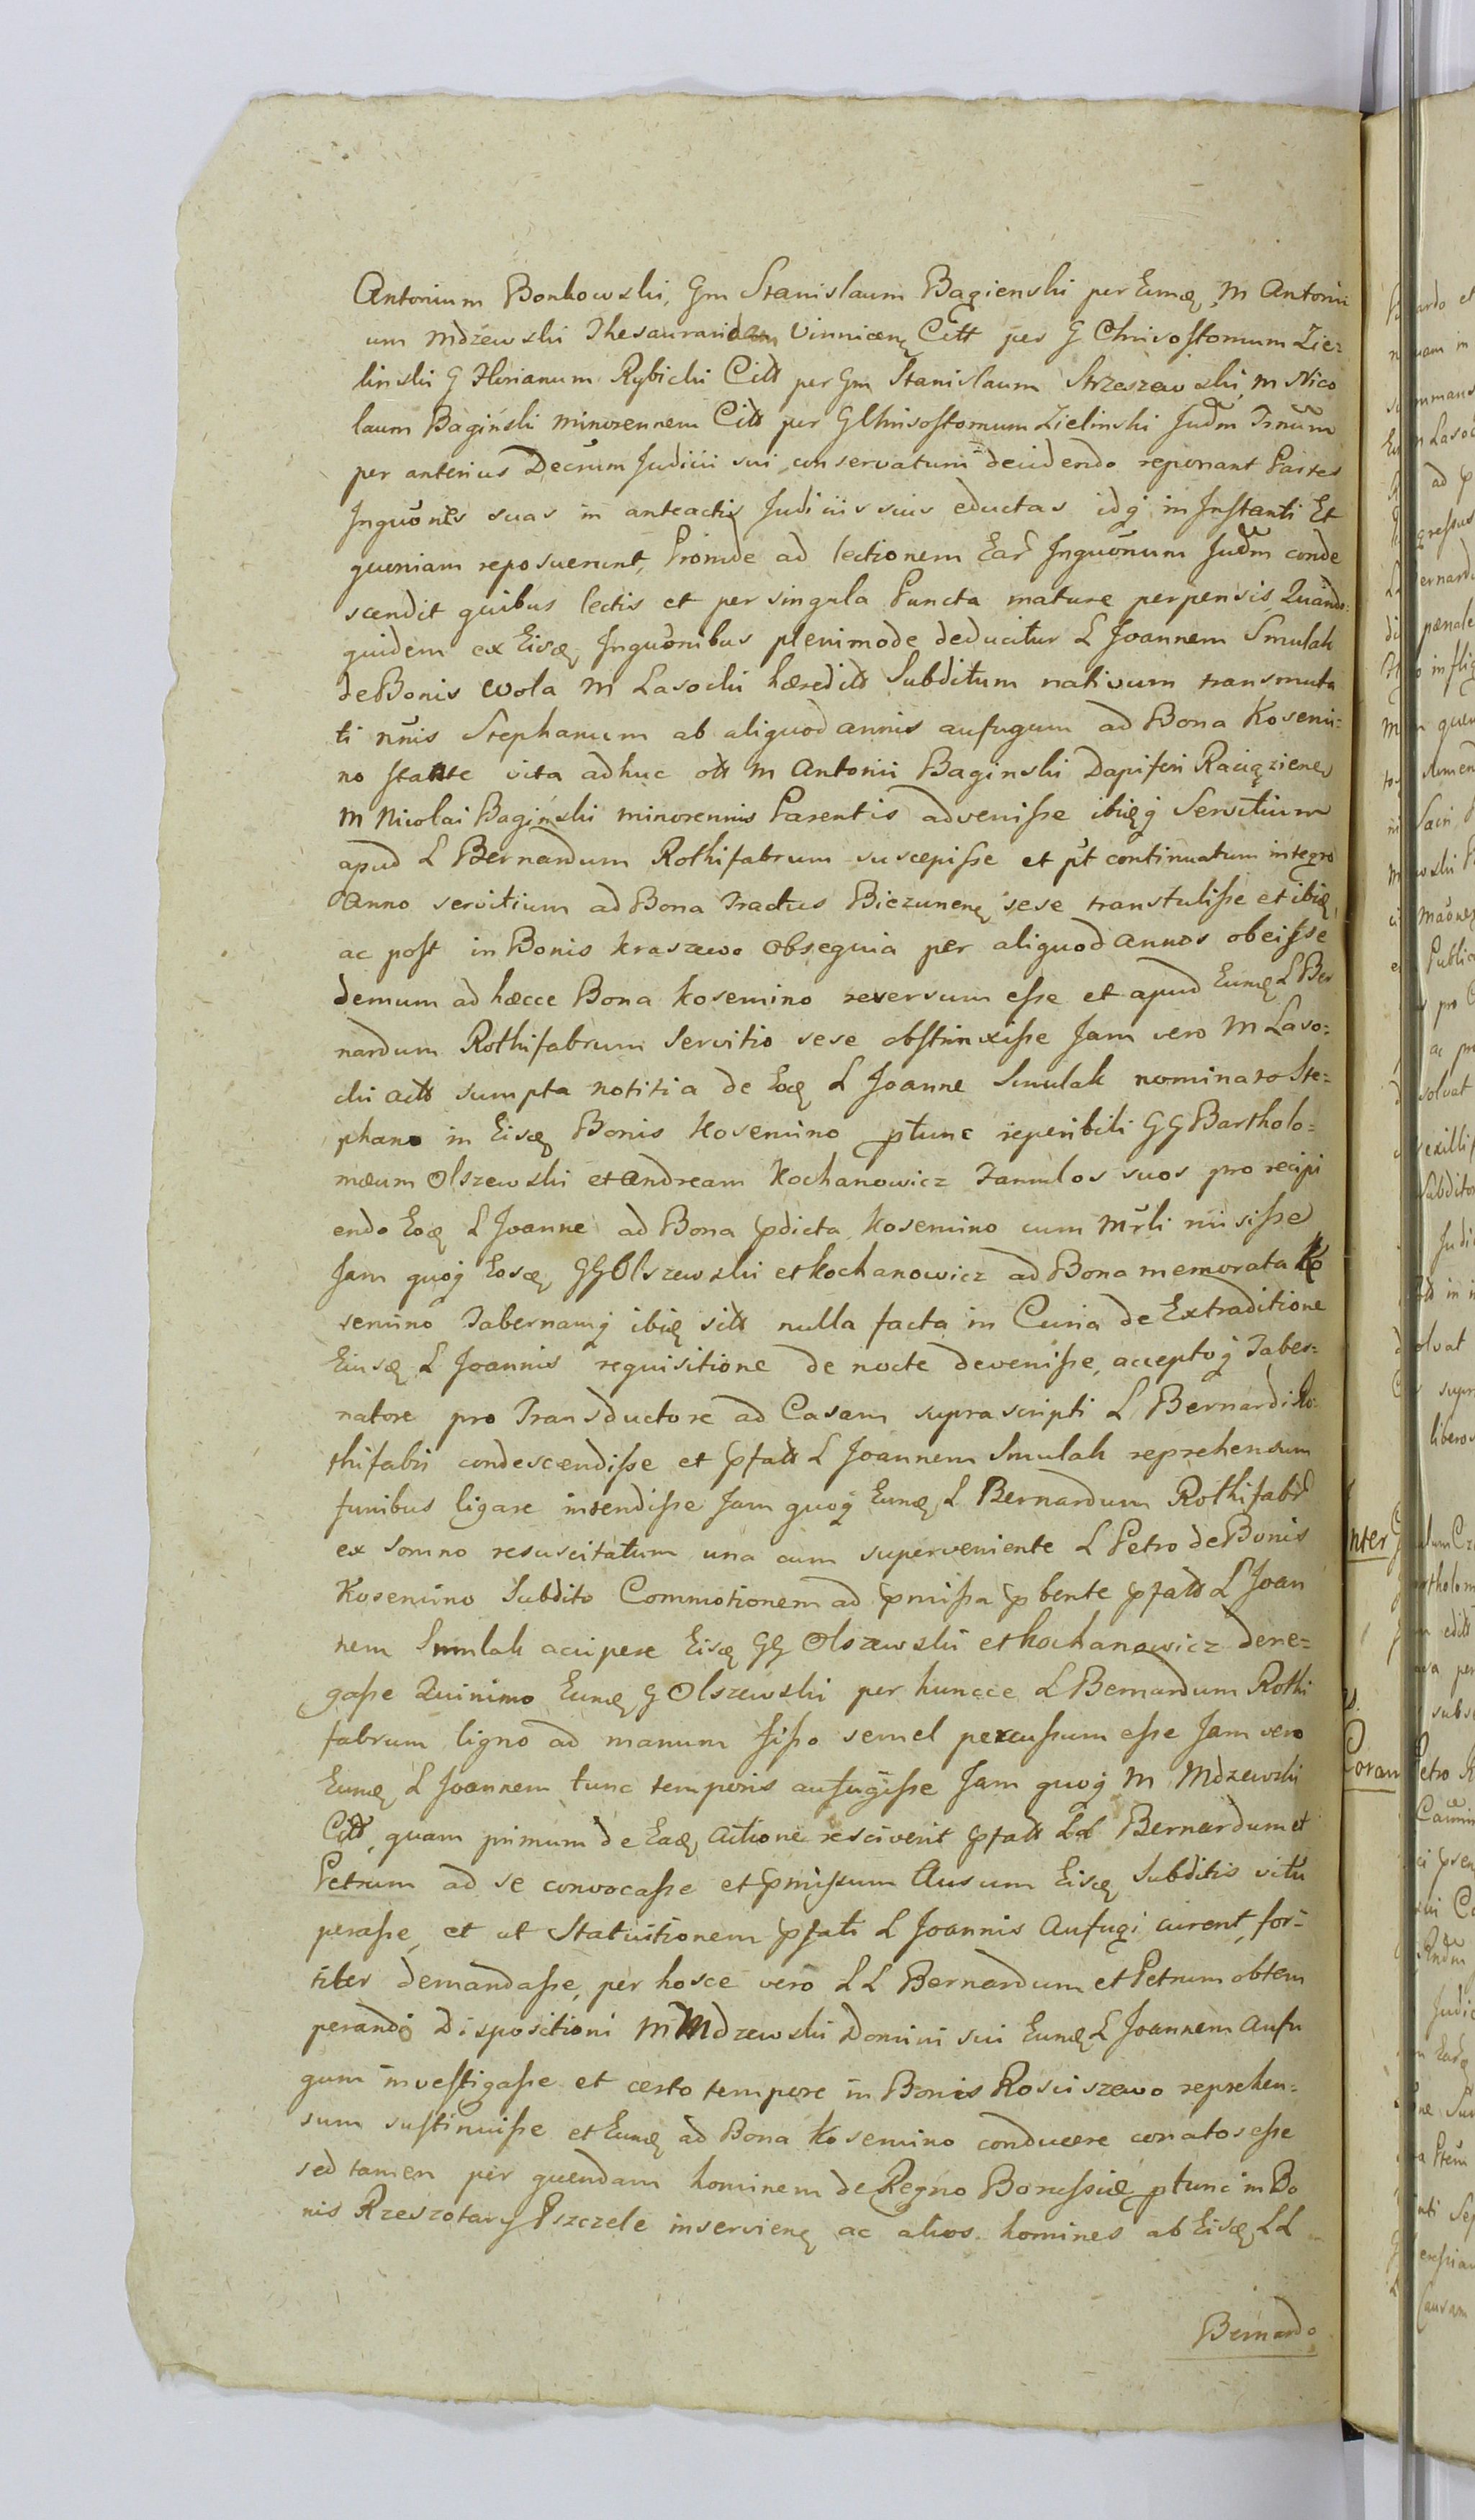 Antonium Bonkowski, Gm Stanislaum Bagienski per Eumę M Antoni
um Mdzewski Thesaurarid Vinnicenę Citt per G Chrisostomum Zie=
linski G Florianum Rybicki Citt per Gm Stanislaum Strzeszewski, M Nico
laum Bagiński minorennem Citt per G Chrisostomum Zielinski Judm Trnum
per anterius Decrum Judicii sui conservatum decidendo reponant Partes
Inquones suas in anteactis Judiciis suis eductas idq in Instanti Et
quoniam reposuerunt, Proinde ad lectionem Ear Inquonum Judm conde
scendit quibus lectis et per singula Puncta mature perpensis Quando=
quidem ex Eisdę Inquonibus plenimode deducitur L Joannem Smulak
de Bonis Wola M Lasocki hæreditt Subditum nativum transmuta
ti nnis Stephanum ab aliquod annis aufugum ad Bona Kosemi=
no stante vita adhuc ott M Antonii Baginski Dapiferi Raciązienę
M Nicolai Bagiński minorennis Parentis advenisse ibięq Servitium
apud L Bernardum Rothifabrum suscepisse et pt continuatum integro
Anno servitium ad Bona Tractus Biezunenę sese transtulisse et ibię
ac post in Bonis Kraszewo obsequia per aliquod annos obeisse
demum ad hæcce Bona Kosemino reversum esse et apud Eumę L Ber
nardum Rothifabrum Servitio sese obstrinxisse Jam vero M Laso=
cki actt sumpta notitia de Eoę L Joanne Smulak nominato Ste=
phano in Eisę Bonis Kosemino ptunc reperibili GG Bartholo=
mæum Olszewski et Andream Kochanowicz Famulos suos pro recipi
endo Eoę L Joanne ad Bona pdicta Kosemino cum Mrli misisse
Jam quoq Eosę GG Olszewski et Kochanowicz ad Bona memorata Ko
semino Tabernamq ibię sitt nulla facta in Curia de Extraditione
Eiusę L Joannis requisitione de nocte devenisse, acceptoq Taber=
natore pro Transductore ad Casam suprascripti L Bernardi Ro=
thifabri condescendisse et pfatt L Joannem Smulak reprehensum
funibus ligare intendisse Jam quoq Eumę L Bernardum Rothifabr
ex somno resuscitatum una cum superveniente L Petro de Bonis
Kosemino Subdito Commotionem ad pmissa pbente pfatt L Joan
nem Smulak accipere Eisę GG Olszewski et Kochanowicz dene=
gasse Quinimo Eumę G Olszewski per huncce L Bernardum Rothi
fabrum ligno ad manum fisso semel percussum esse Jam vero
Eumę L Joannem tunc temporis aufugisse Jam quoq M Mdzewski
Citt, quam primum de Eaę actione resciverit pfatt LL Bernardum et
Petrum ad se convocasse et pmissum Ausum Eisę Subditis vitu
perasse, et ut Statuitionem pfati L Joannis Aufugi curent, for=
titer demandasse, per hosce vero LL Bernardum et Petrum obtem
perando Dispositioni M Mdzewski Domini sui Eumę L Joannem Aufu
gum investigasse et certo tempore in Bonis Rosciszewo reprehen=
sum sustinuisse et Eumę ad Bona Kosemino conducere conatos esse
sed tamen per quendam hominem de Regno Borussię ptunc in Bo
nis Rzeszotary Pszczele inservienę ac alios homines ab Eisę LL
Bernardo